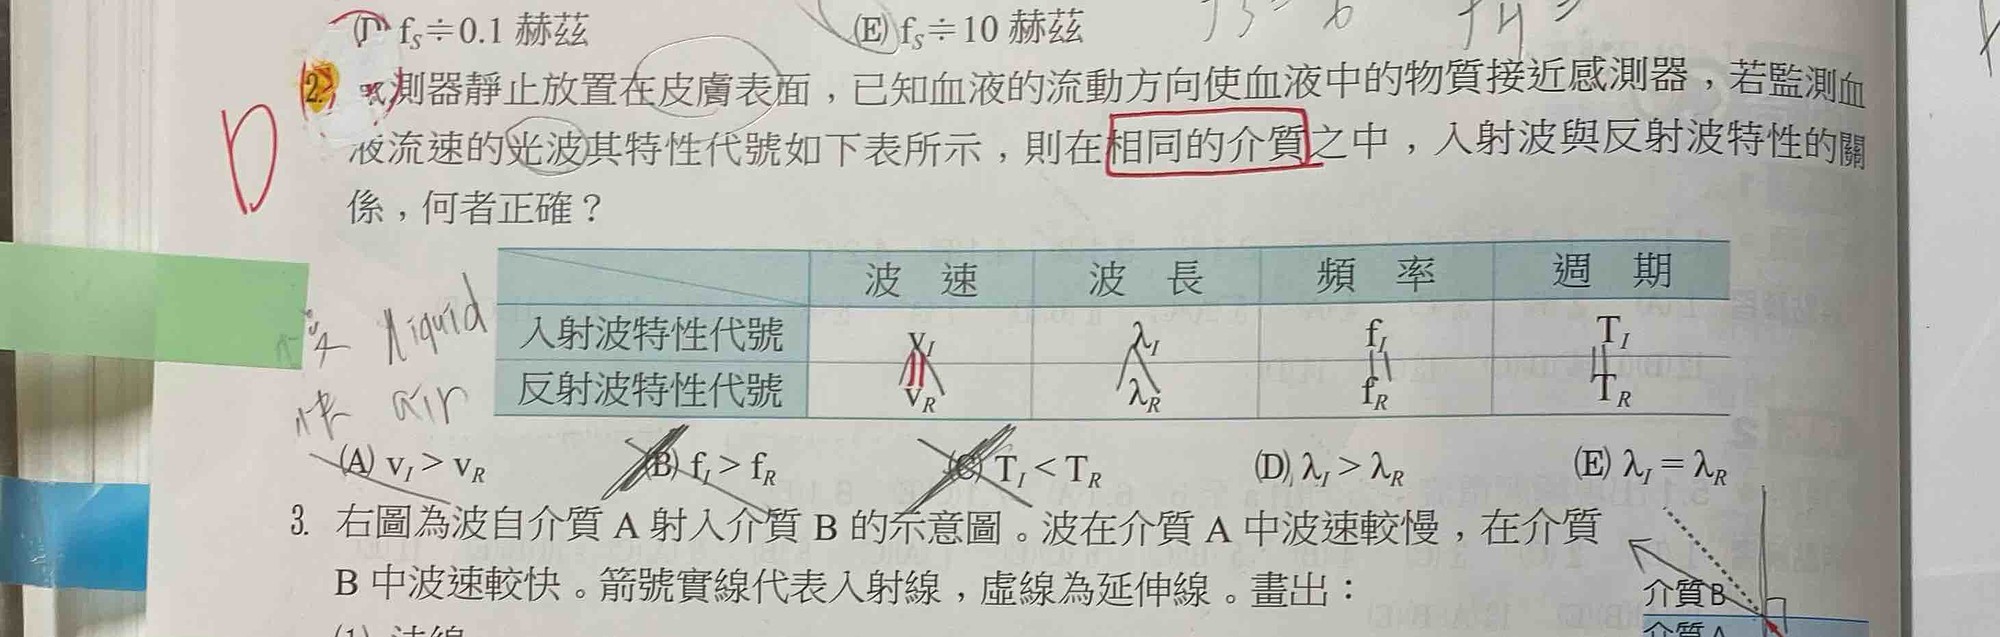 f_S≑0.1 赫茲 (E) f_S≑10 赫茲
2. 測器靜止放置在皮膚表面，已知血液的流動方向使血液中的物質接近感測器，若監測血
液流速的光波其特性代號如下表所示，則在相同的介質之中，入射波與反射波特性的關
係，何者正確？
D
波速 波長 頻率 週期
入射波特性代號 v_I λ_I f_I T_I
反射波特性代號 v_R λ_R f_R T_R
慢 liquid
快 air
(A) v_I > v_R (B) f_I > f_R (C) T_I < T_R (D) λ_I > λ_R (E) λ_I = λ_R
3. 右圖為波自介質 A 射入介質 B 的示意圖。波在介質 A 中波速較慢，在介質
B 中波速較快。箭號實線代表入射線，虛線為延伸線。畫出：
介質B
介質A
(1) 法線